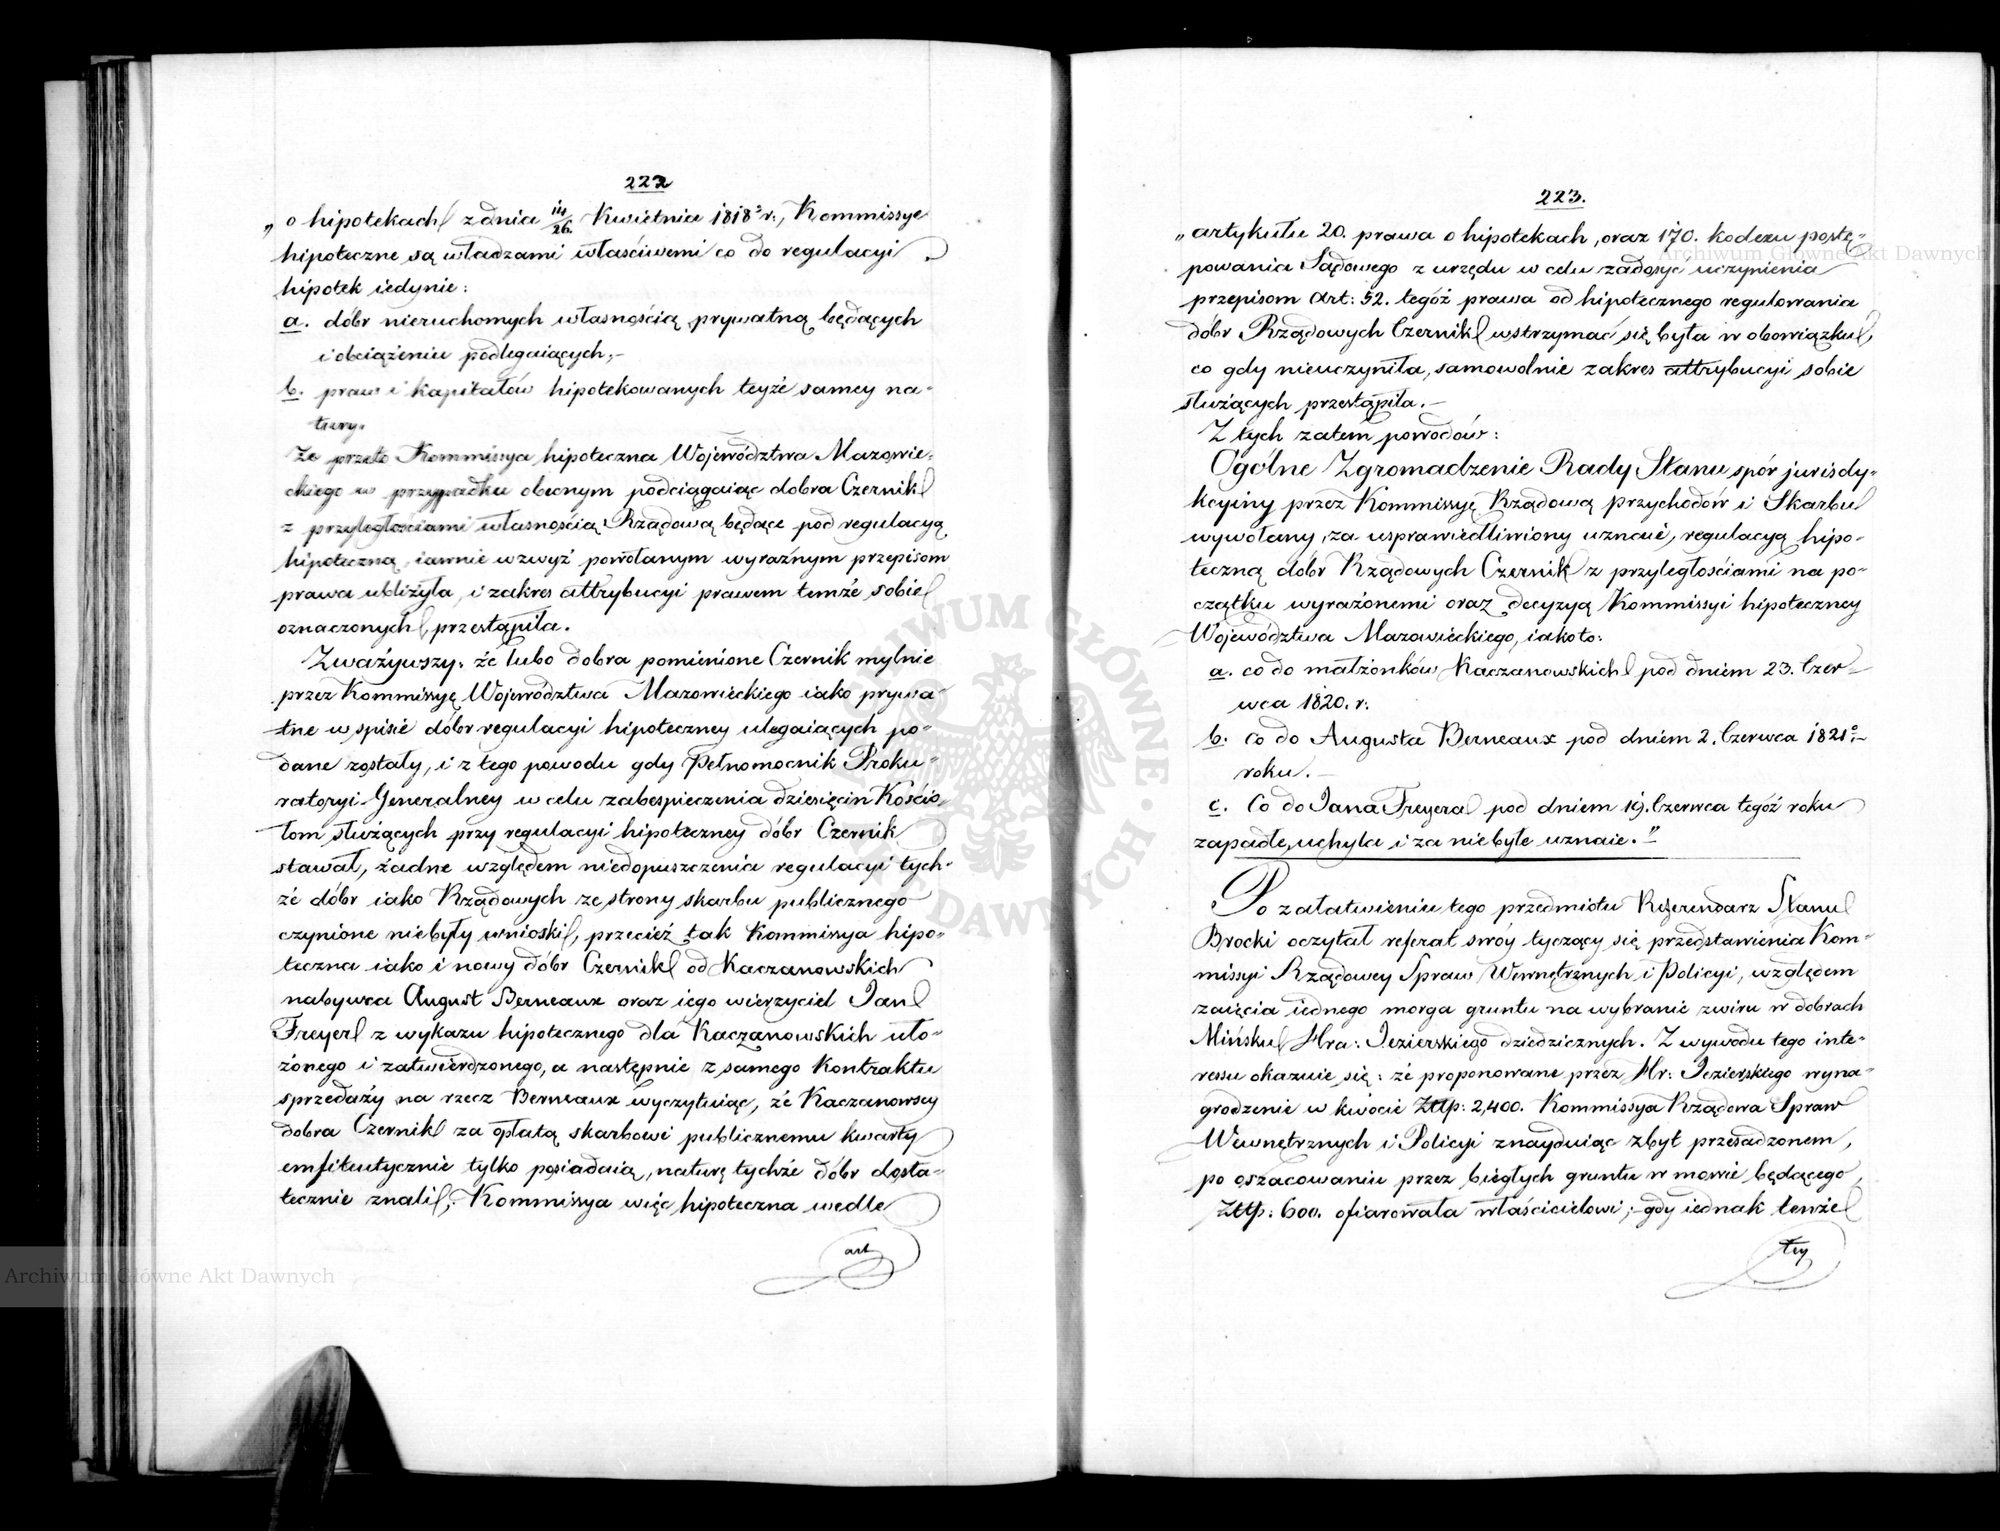 222
„ o hipotekach z dnia 14/26. Kwietnia 1818º r:, Kommissye
hipoteczne są władzami właściwemi co do regulacyi
hipotek iedynie:
a. dóbr nieruchomych własnością prywatną będących
i obciążeniu podlegaiących,–
b. praw i kapitałów hipotekowanych teyże samey na-
tury.
Że przeto Kommissya hipoteczna Województwa Mazowie-
ckiego w przypadku obecnym podciągaiąc dobra Czernik
z przyległościami własnością Rządową będące pod regulacyą
hipoteczną, iawnie wzwyż powołanym wyraźnym przepisom
prawa ubliżyła, i zakres attrybucyi prawem temże sobie
oznaczonych, przestąpiła.
Zważywszy: że lubo dobra pomienione Czernik mylnie
przez Kommissyę Województwa Mazowieckiego iako prywa-
tne w spisie dóbr regulacyi hipoteczney ulegaiących po-
dane zostały, i z tego powodu gdy Pełnomocnik Proku-
ratoryi Generalney w celu zabespieczenia dziesięcin Kościo-
łom służących przy regulacyi hipoteczney dóbr Czernik
stawał, żadne względem niedopuszczenia regulacyi tych-
że dóbr iako Rządowych ze strony skarbu publicznego
czynione niebyły wnioski, przecież tak Kommissya hipo-
teczna iako i nowy dóbr Czernik od Kaczanowskich
nabywca August Berneaux oraz iego wierzyciel Jan
Freyer z wykazu hipotecznego dla Kaczanowskich uło-
żonego i zatwierdzonego, a następnie z samego Kontraktu
sprzedaży na rzecz Berneaux wyczytuiąc, że Kaczanowscy
dobra Czernik za opłatą skarbowi publicznemu kwarty
emfiteutycznie tylko posiadaią, naturę tychże dóbr dosta-
tecznie znali; Kommissya więc hipoteczna wedle
art
223.
„ artykułu 20. prawa o hipotekach, oraz 170. kodexu postę-
powania Sądowego z urzędu w celu zadosyc uczynienia
przepisom Art: 52. tegoż prawa od hipotecznego regulowania
dóbr Rządowych Czernik wstrzymać się była w obowiązku,
co gdy nieuczyniła, samowolnie zakres attrybucyi sobie
służących przestąpiła.–
Z tych zatem powodów:
Ogólne Zgromadzenie Rady Stanu spór jurisdy-
kcyiny przez Kommissyę Rządową przychodów i Skarbu
wywołany, za usprawiedliwiony uznaie, regulacyą hipo-
teczną dóbr Rządowych Czernik z przyległościami na po-
czątku wyrażonemi oraz decyzyą Kommissyi hipoteczney
Województwa Mazowieckiego, iako to:
a. co do małżonków Kaczanowskich pod dniem 23. Czer-
wca 1820. r:
b. co do Augusta Berneaux pod dniem 2. Czerwca 1821º–
roku.–
c. Co do Jana Freyera pod dniem 19. Czerwca tegóż roku
zapadłe, uchyla i za niebyłe uznaie.”–
Po załatwieniu tego przedmiotu Referendarz Stanu
Brocki oczytał referat swóy tyczący się przedstawienia Kom-
missyi Rządowey Spraw Wewnętrznych i Policyi, względem
zaięcia iednego morga gruntu na wybranie zwiru w dobrach
Mińsku Hra: Jezierskiego dziedzicznych. Z wywodu tego inte-
ressu okazuie się: że proponowane przez Hr: Jezierskiego wyna-
grodzenie w kwocie Złłp: 2,400. Kommissya Rządowa Spraw
Wewnętrznych i Policyi znayduiąc zbyt przesadzonem,
po oszacowaniu przez biegłych gruntu w mowie będącego,
Złłp: 600. ofiarowała właścicielowi; gdy iednak tenże
tey
Archiwum Główne Akt Dawnych